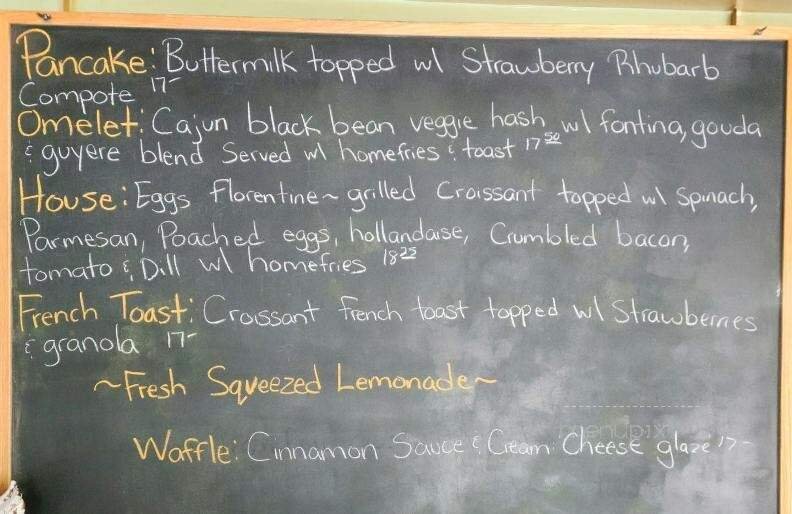 Pancake: Buttermilk topped w/ Strawberry Rhubarb
Compote 17-
Omelet: Cajun black bean veggie hash w/ fontina, gouda
& guyere blend Served w/ homefries & toast 17 50
House: Eggs florentine~ grilled Croissant topped w/ Spinach,
Parmesan, Poached eggs, hollandaise, Crumbled bacon,
tomato & Dill w/ homefries 18 25
French Toast: Croissant french toast topped w/ Strawberries
& granola 17-
~Fresh Squeezed Lemonade~
menupix
Waffle: Cinnamon Sauce & Cream Cheese glaze 17-